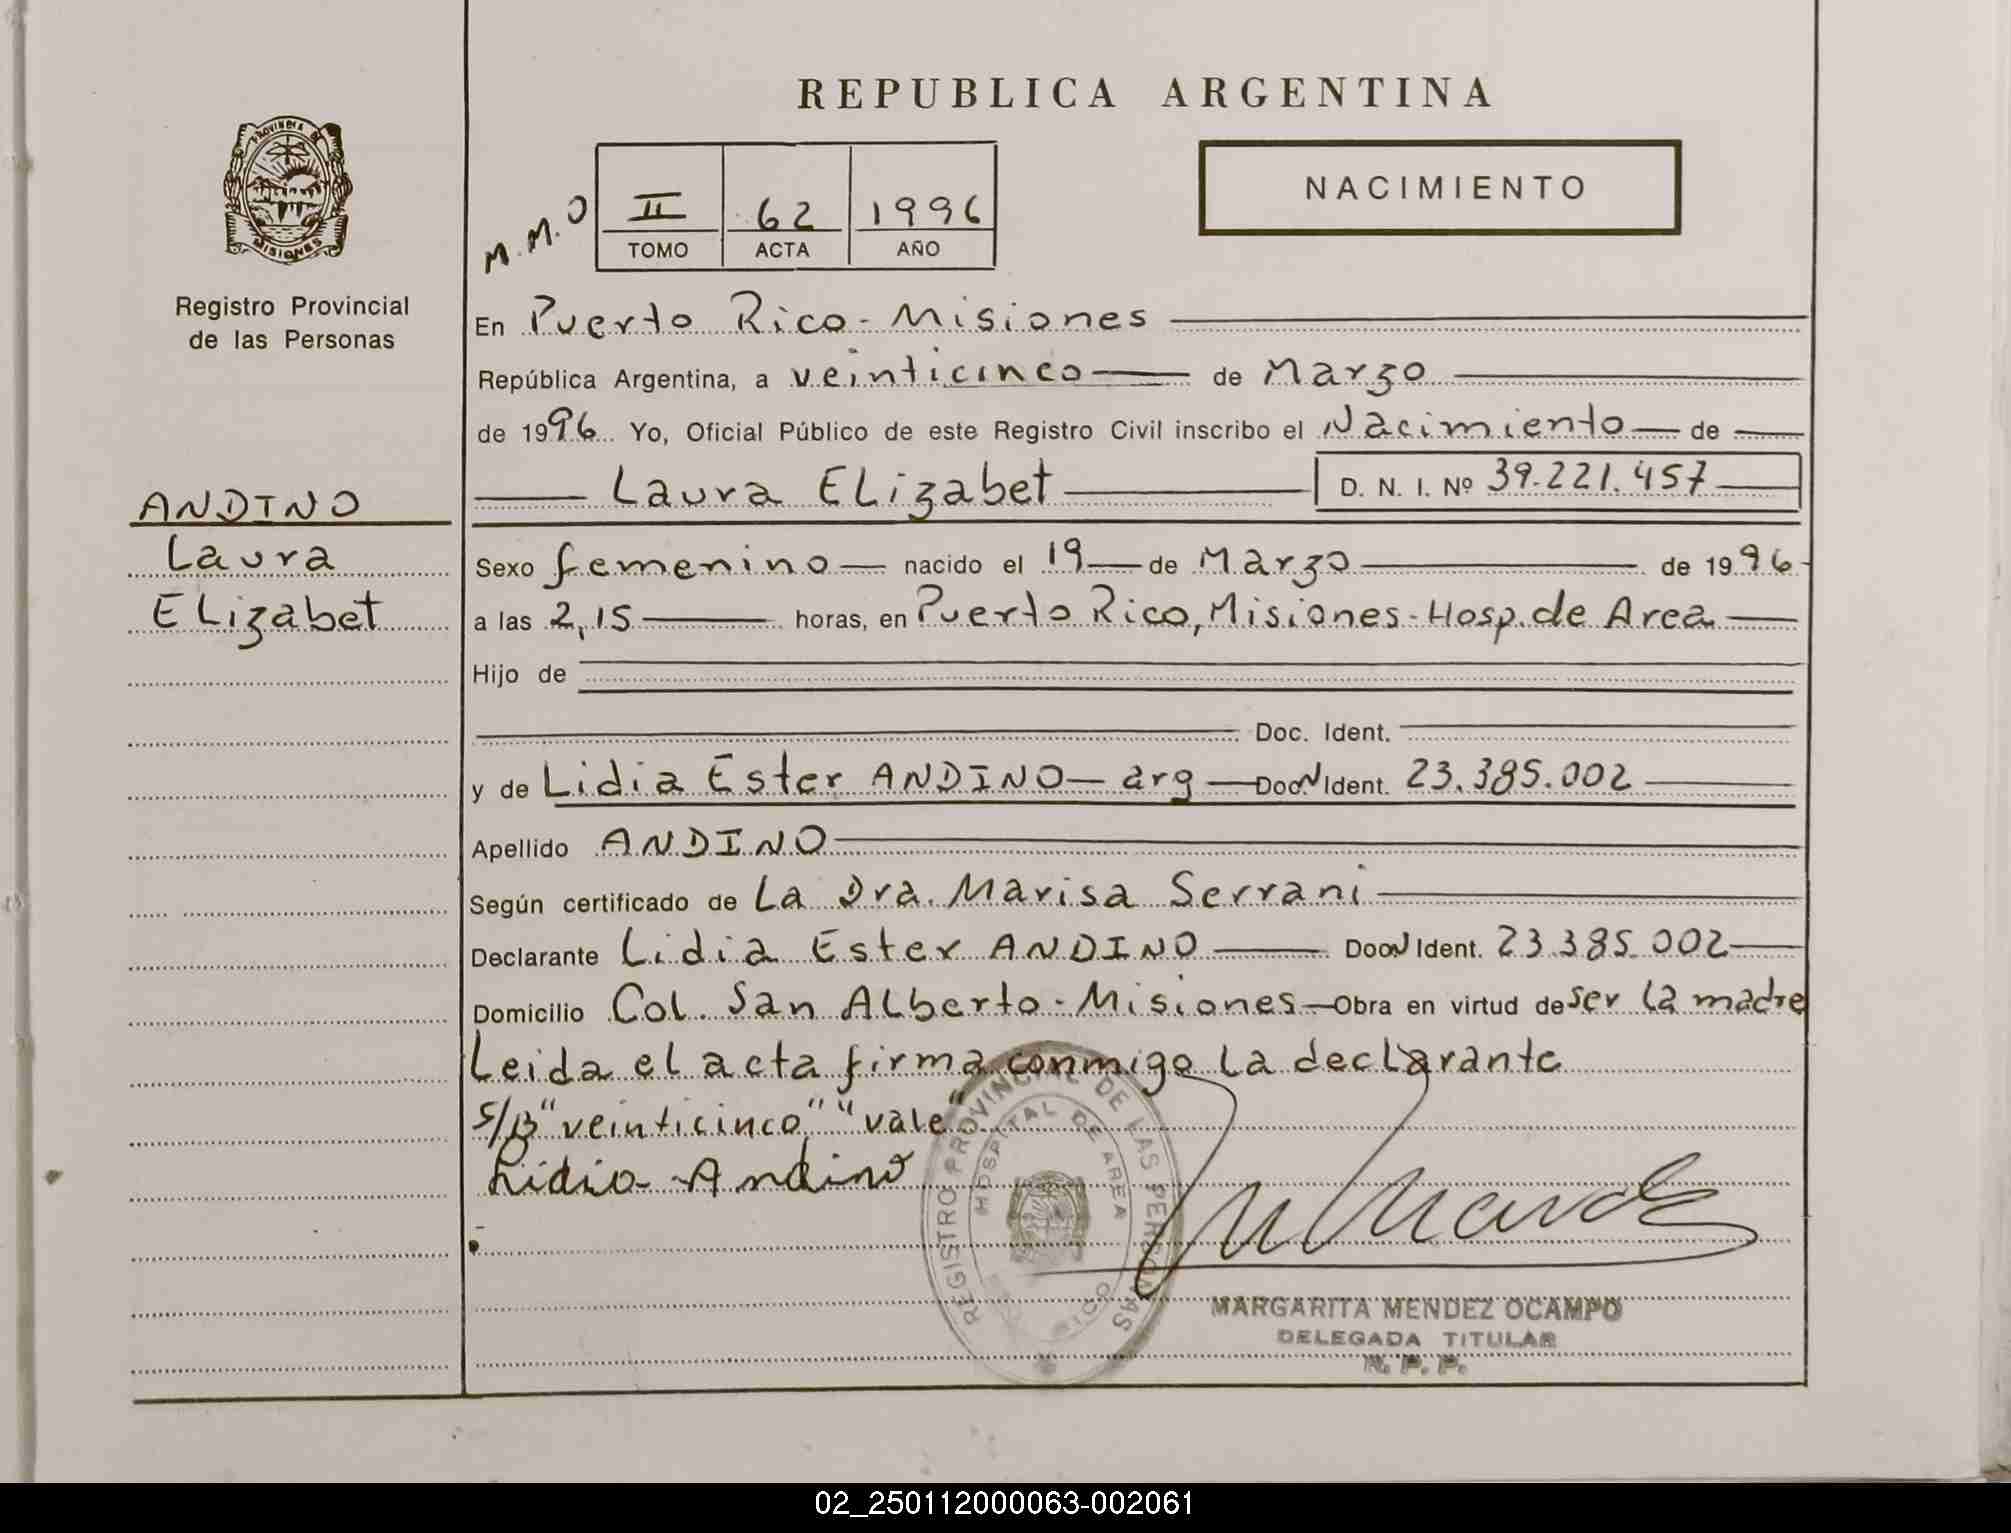 REPUBLICA ARGENTINA
PROVINCIA DE
MISIONES
NACIMIENTO
M.M.O
II 62 1996
TOMO ACTA AÑO
Registro Provincial
de las Personas
En Puerto Rico - Misiones
República Argentina, a veinticinco de Marzo
de 1996 Yo, Oficial Público de este Registro Civil inscribo el Nacimiento de
Laura ELizabet D. N. I. Nº 39.221.457
ANDINO
Laura
ELizabet
Sexo femenino nacido el 19 de Marzo de 1996
a las 2,15 horas, en Puerto Rico, Misiones - Hosp. de Area
Hijo de
Doc. Ident.
y de Lidia Ester ANDINO - arg - Doc. N Ident. 23.385.002
Apellido ANDINO
Según certificado de La Dra. Marisa Serrani
Declarante Lidia Ester ANDINO Doc. N Ident. 23.385.002
Domicilio Col. San ALberto - Misiones - Obra en virtud de ser la madre
Leida el acta firma conmigo la declarante
S/B "veinticinco" "vale"
Lidia Andino
REGISTRO PROVINCIAL DE LAS PERSONAS
HOSPITAL DE AREA
MARGARITA MENDEZ OCAMPO
DELEGADA TITULAR
R. P. P.
02_250112000063-002061